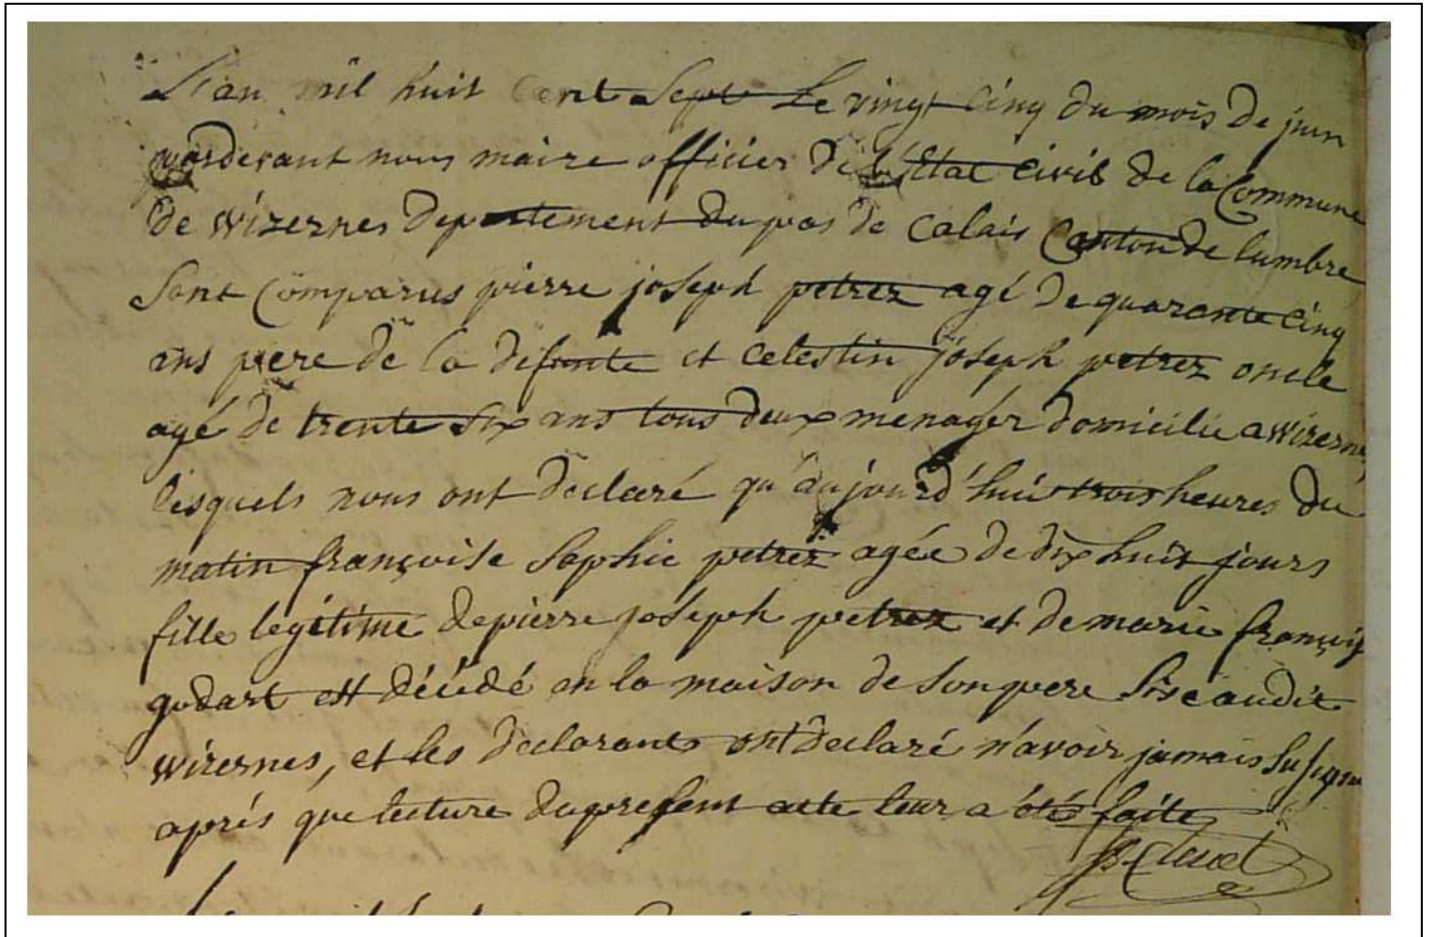 L'an mil huit cent sept le vingt cinq du mois de juin
pardevant nous maire officier de l'Etat civil de la Commune
de wizernes departement du pas de calais Canton de lumbre
sont Comparus pierre joseph petrez agé de quarante cinq
ans pere de la defunte et celestin joseph petrez oncle
agé de trente six ans tous deux menager domicilie a wizernes
lesquels nous ont declaré qu'aujourd'hui trois heures du
matin françoise Sophie petrez agée de dix huit jours
fille legitime de pierre joseph petrez et de marie françoise
godart est décédé en la maison de son pere sise audit
wizernes, et les declarants ont declaré n'avoir jamais su signer
aprés que lecture du present acte leur a été faite